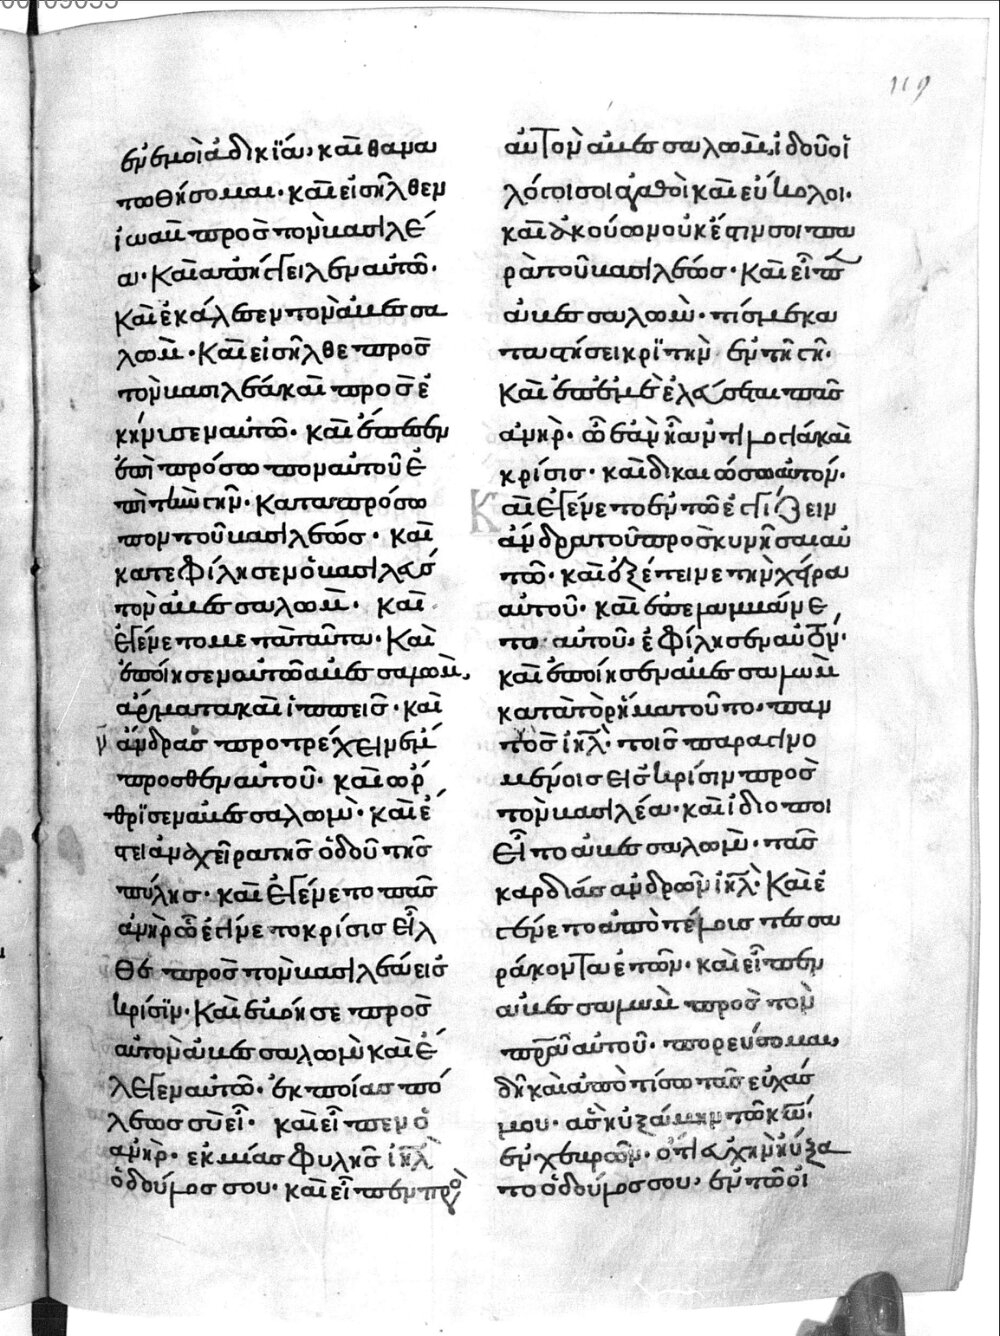 119
ἐν ἐμοὶ ἀδικία, καὶ θανα
τωθήσομαι· καὶ εἰσῆλθεν
ἰωαὺ πρὸς τὸν βασιλέ
α· Καὶ ἀπήγγειλεν αὐτῶ·
Καὶ ἐκάλεσεν τὸν ἀβεσσα
λωμ· Καὶ εἰσῆλθε πρὸς
τὸν βασιλέα καὶ προσε
κύνισεν αὐτῶ· καὶ ἔπεσεν
ἐπὶ πρόσωπον αὐτοῦ ἐ
πὶ τὴν γῆν· Κατὰ πρόσω
πον τοῦ βασιλέως· καὶ
κατεφίλησεν ὁ βασιλεὺς
τὸν ἀβεσσαλωμ· Καὶ
ἐγένετο μετὰ ταῦτα· Καὶ
ἐποίησεν αὐτῶ ἀβεσσαλωμ,
ἅρματα καὶ ἵππεις· καὶ
ν ἄνδρας προτρέχειν ἔμ
προσθεν αὐτοῦ· καὶ ὤρ
θρισεν ἀβεσσαλωμ· καὶ ἔ
στει ἀνὰ χεῖρα τῆς ὁδοῦ τῆς
πύλης· καὶ ἐγένετο πᾶς
ἀνὴρ ὧ ἐγίνετο κρίσις εἶλ
θε πρὸς τὸν βασιλέα εἰς
κρίσιν· Καὶ ἐβόησε πρὸς
αὐτὸν ἀβεσσαλωμ καὶ ἔ
λεγεν αὐτῶ· ἐκ ποίας πό
λεως σὺ εἶ· καὶ εἶπεν ὁ
ἀνήρ· ἐκ μιᾶς φυλῆς ἰηλ
ὁ δοῦλος σου· καὶ εἶπεν πρὸ
αὐτὸν ἀβεσσαλωμ, ἰδοῦ οἱ
λόγοι σοι ἀγαθοὶ καὶ εὔκολοι·
καὶ ἀκούων οὐκ ἔστιν σοι πα
ρὰ τοῦ βασιλέως· Καὶ εἶπεν
ἀβεσσαλωμ· τίς με κα
ταστήσει κριτὴν ἐν τῆ γῆ·
Καὶ ἐπ ἐμὲ ἐλεύσεται πᾶς
ἀνήρ· ὧ ἐὰν ἦ ἀντιλογία καὶ
κρίσις· καὶ δικαιώσω αὐτόν·
Καὶ ἐγένετο ἐν τῶ ἐγγίζειν
ἄνδρα τοῦ προσκυνῆσαι αὐ
τῶ· καὶ ἐξέτεινε τὴν χεῖρα
αὐτοῦ· καὶ ἐπελαμβάνε
το αὐτοῦ, ἐφίλησεν αὐτόν·
καὶ ἐποίησεν ἀβεσσαλωμ
κατὰ τὸ ῥῆμα τοῦτο, παν
τὸς ἰηλ· τοῖς παραγινο
μένοις εἰς κρίσιν πρὸς
τὸν βασιλέα· καὶ ἰδιοποι
εῖτο ἀβεσσαλωμ· πᾶς
καρδίας ἀνδρῶν ἰηλ· Καὶ ἐ
γένετο ἀπὸ τέλοις τεσσα
ράκοντα ἐτῶν· καὶ εἶπεν
ἀβεσσαλωμ πρὸς τὸν
πρα αὐτοῦ· πορεύσομαι,
δὴ καὶ ἀποτίσω τὰς εὐχάς
μου· ἃς ηὐξάμην τῶ κω·
ἐν χευρών· ὅτι εὐχὴν ηὔξα
το ὁ δοῦλος σου, ἐν τῶ οἰ